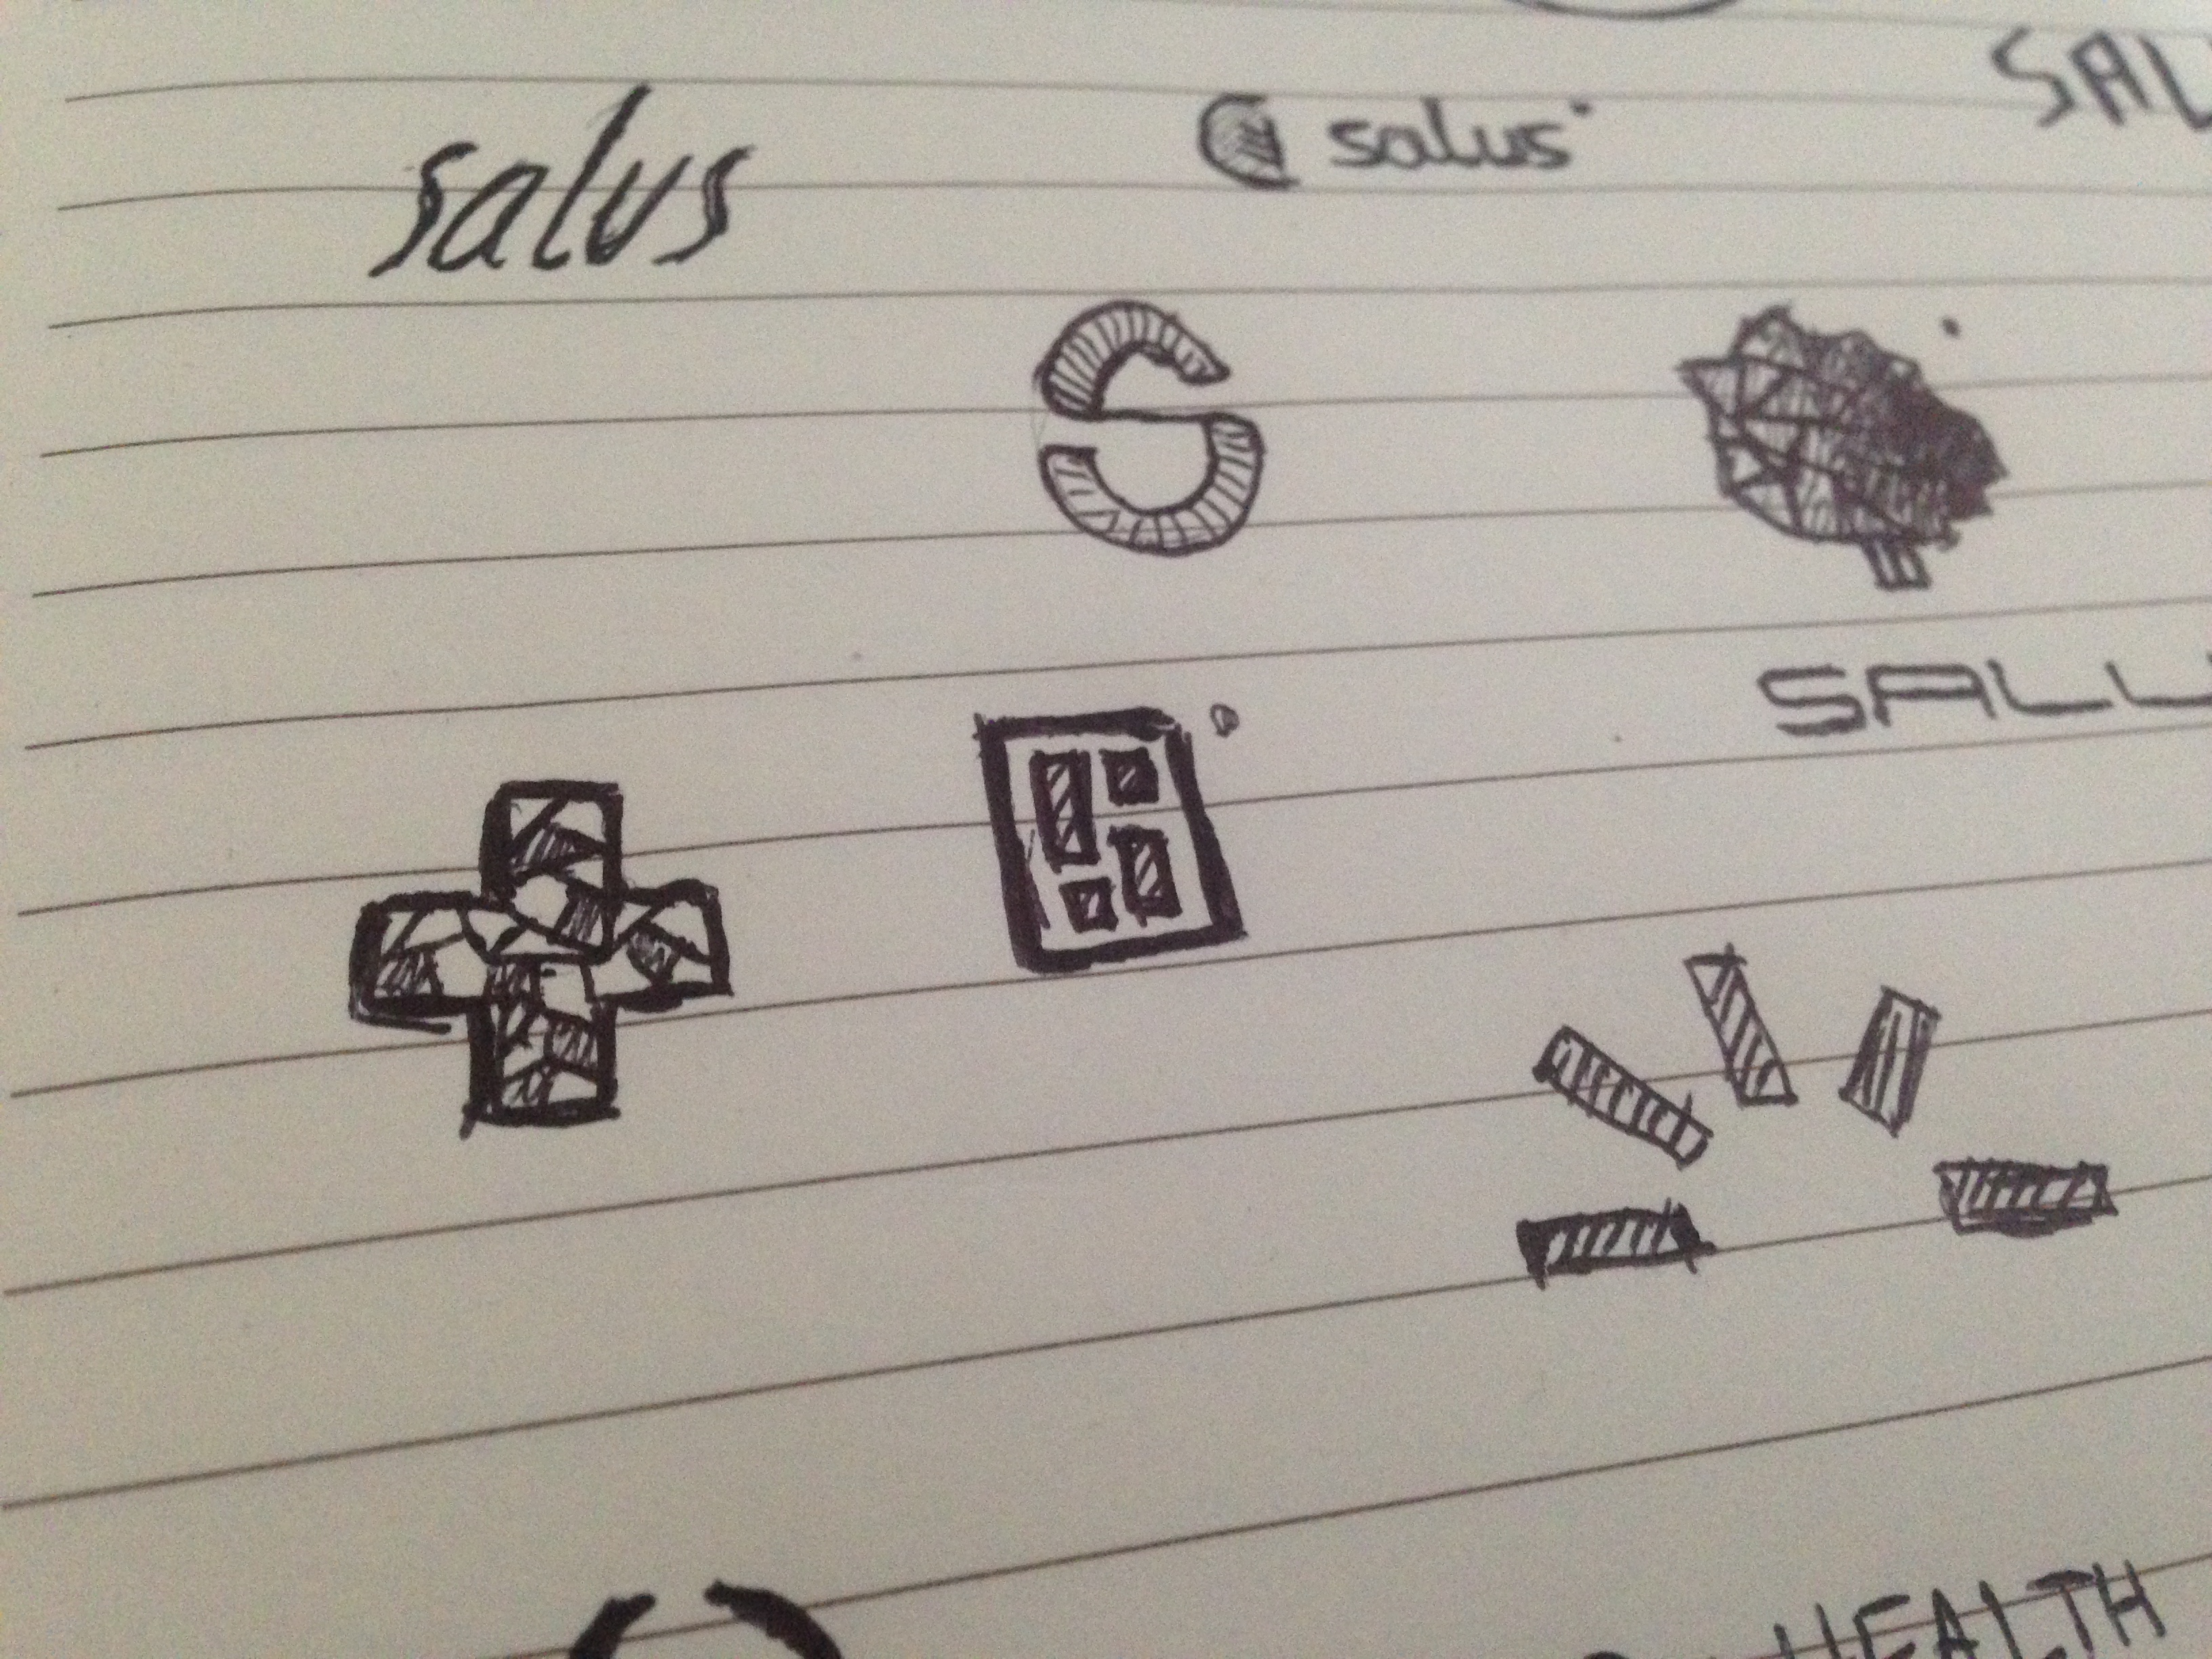 salus
salus
SAL
S
SALU
HEALTH